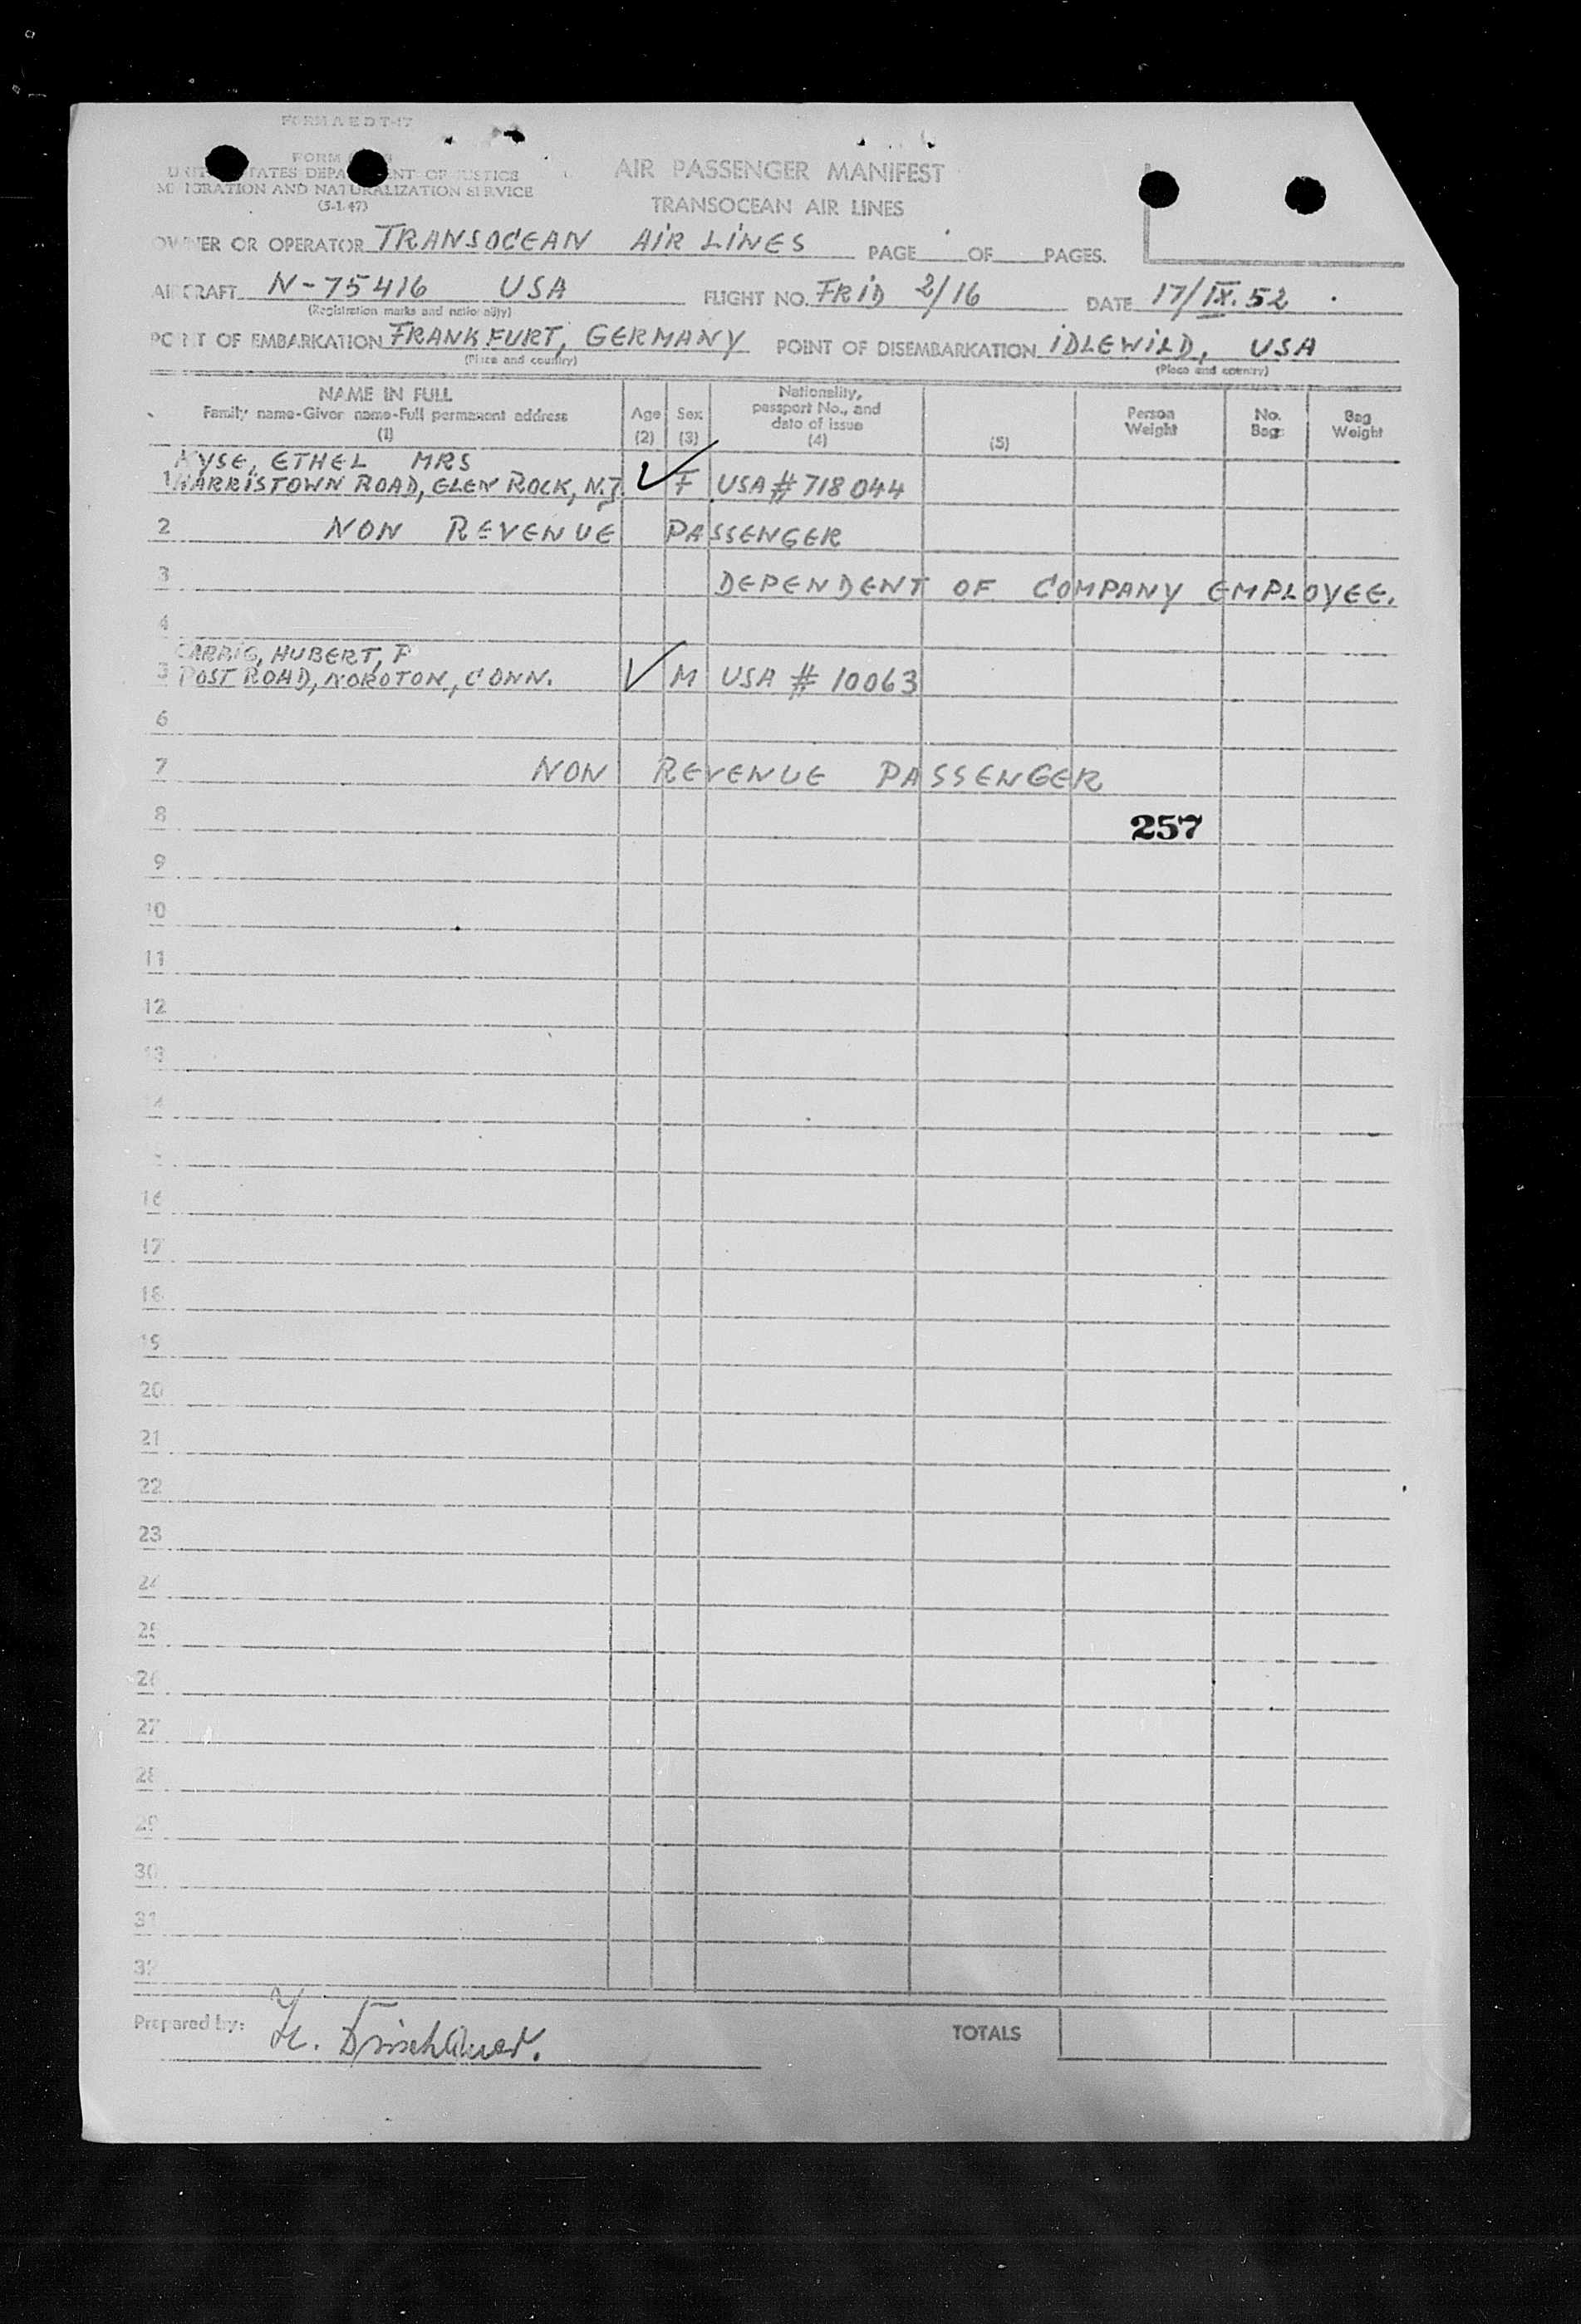 FORM A E D T-17
FORM
UNITED STATES DEPARTMENT OF JUSTICE
IMMIGRATION AND NATURALIZATION SERVICE
(5-1-47)
AIR PASSENGER MANIFEST
TRANSOCEAN AIR LINES
OWNER OR OPERATOR TRANSOCEAN AIR LINES PAGE OF PAGES.
AIRCRAFT N-75416 USA FLIGHT NO. FRID 2/16 DATE 17/IX.52
(Registration marks and nationality)
POINT OF EMBARKATION FRANKFURT, GERMANY POINT OF DISEMBARKATION IDLEWILD, USA
(Place and country) (Place and country)
NAME IN FULL
Family name-Given name-Full permanent address
(1)
Age
(2)
Sex
(3)
Nationality,
passport No., and
date of issue
(4)
(5)
Person
Weight
No.
Bags
Bag
Weight
ETHEL MRS
1 HARRISTOWN ROAD, GLEN ROCK, N.J. F USA # 718044
2 NON REVENUE PASSENGER
3 DEPENDENT OF COMPANY EMPLOYEE.
4
HUBERT, P
5 POST ROAD, NOROTON, CONN. M USA # 10063
6
7 NON REVENUE PASSENGER
8 257
9
10
11
12
13
14
16
17
18
19
20
21
22
23
24
25
26
27
28
29
30
31
32
Prepared by: TOTALS